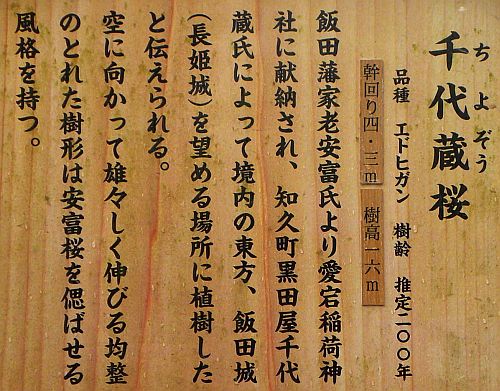 ちよぞう
千代蔵桜
品種　エドヒガン　樹齢　推定二〇〇年
幹回り四・三m　樹高一六m
飯田藩家老安富氏より愛宕稲荷神
社に献納され、知久町黒田屋千代
蔵氏によって境内の東方、飯田城
(長姫城)を望める場所に植樹した
と伝えられる。
空に向かって雄々しく伸びる均整
のとれた樹形は安富桜を偲ばせる
風格を持つ。